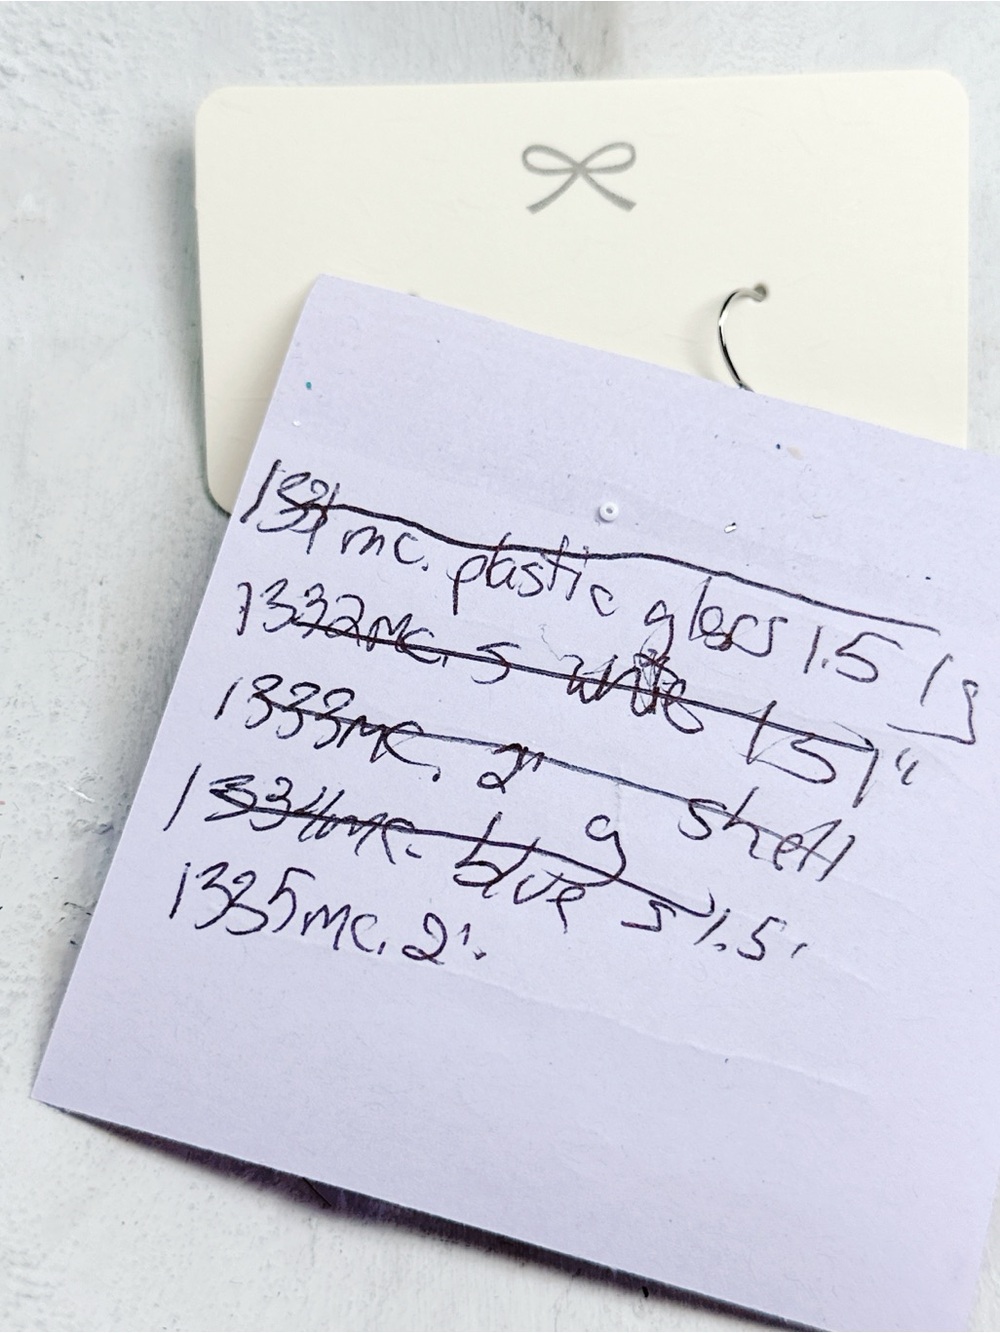 1331 mc. plastic glass 1.5 1g
1332mc. s white 1.5 1"
1333mc. 2" g shell
1334mc. blue s 1.5'
1335mc. 2".